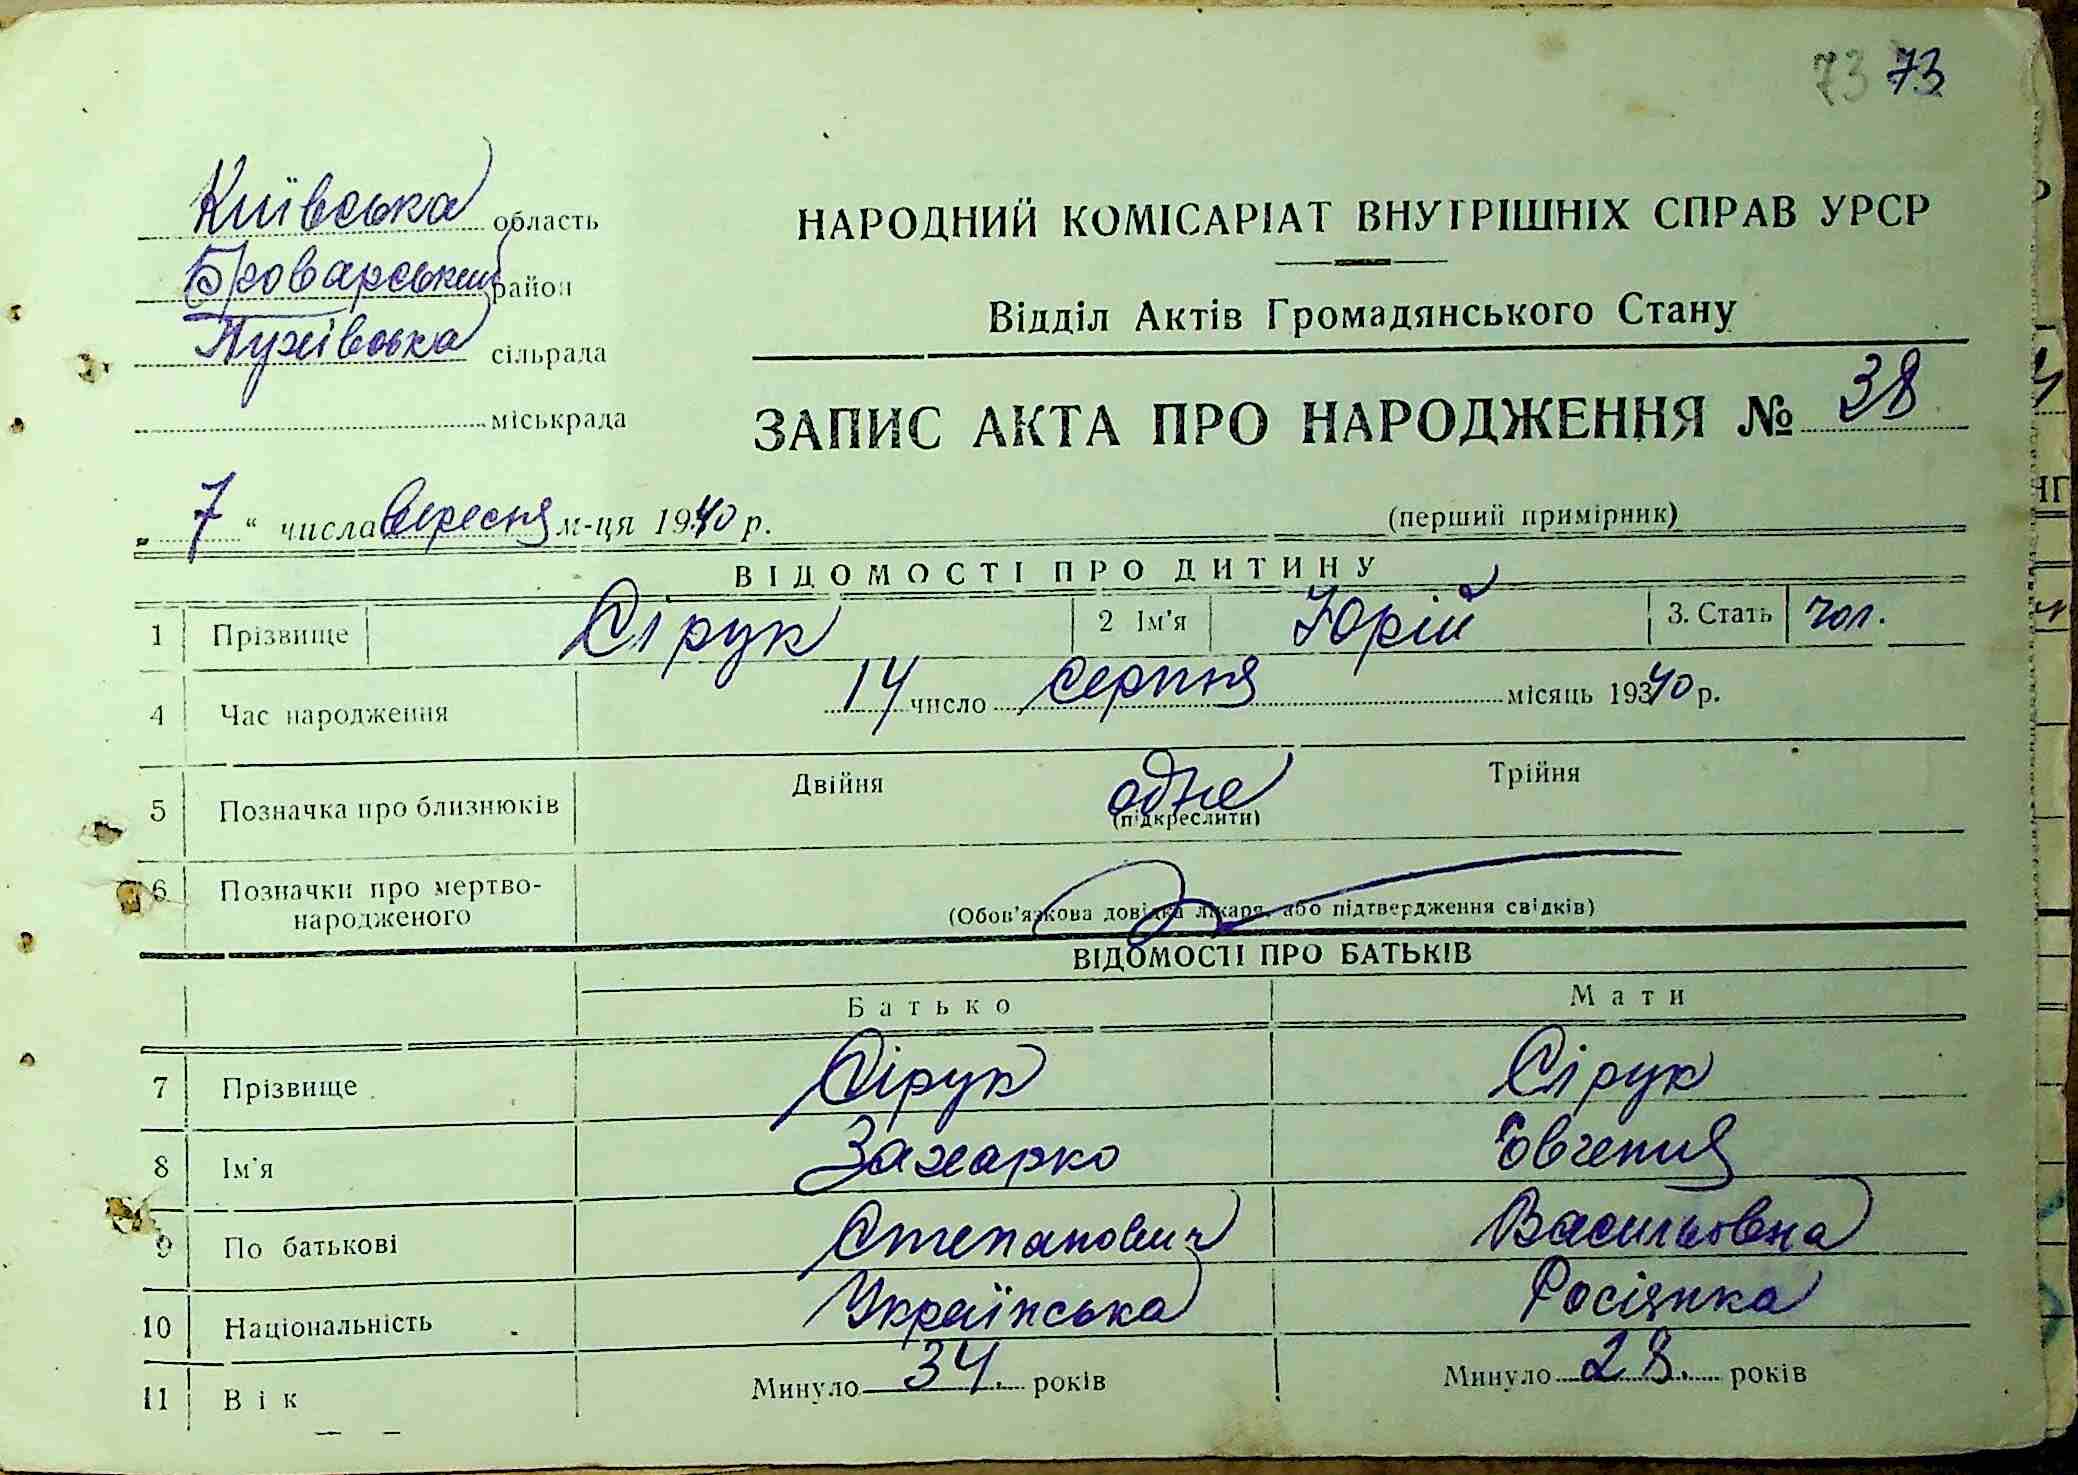 73 73
Київська область
Броварський район
Пухівська сільрада
міськрада
НАРОДНИЙ КОМІСАРІАТ ВНУТРІШНІХ СПРАВ УРСР
Відділ Актів Громадянського Стану
ЗАПИС АКТА ПРО НАРОДЖЕННЯ № 38
„ 7 “ числа вересня м-ця 1940 р.
(перший примірник)
ВІДОМОСТІ ПРО ДИТИНУ
1 Прізвище Сірук 2 Ім'я Юрій 3. Стать чол.
4 Час народження 14 число серпня місяць 19340 р.
5 Позначка про близнюків Двійня одне Трійня
(підкреслити)
6 Позначки про мертво-
народженого
(Обов'язкова довідка лікаря, або підтвердження свідків)
ВІДОМОСТІ ПРО БАТЬКІВ
Батько Мати
7 Прізвище Сірук Сірук
8 Ім'я Захарко Євгения
9 По батькові Степанович Васильовна
10 Національність Українська Росіянка
11 Вік Минуло 34. років Минуло 28. років